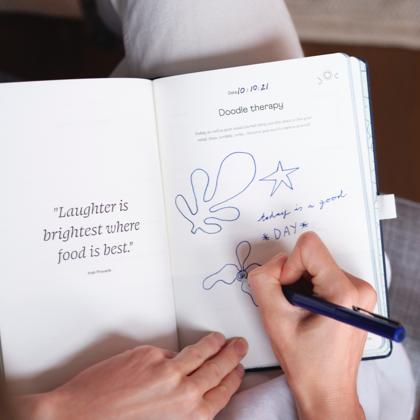 "Laughter is
brightest where
food is best."
Irish Proverb
Date 10.10.21
Doodle therapy
today is a good
*DAY*